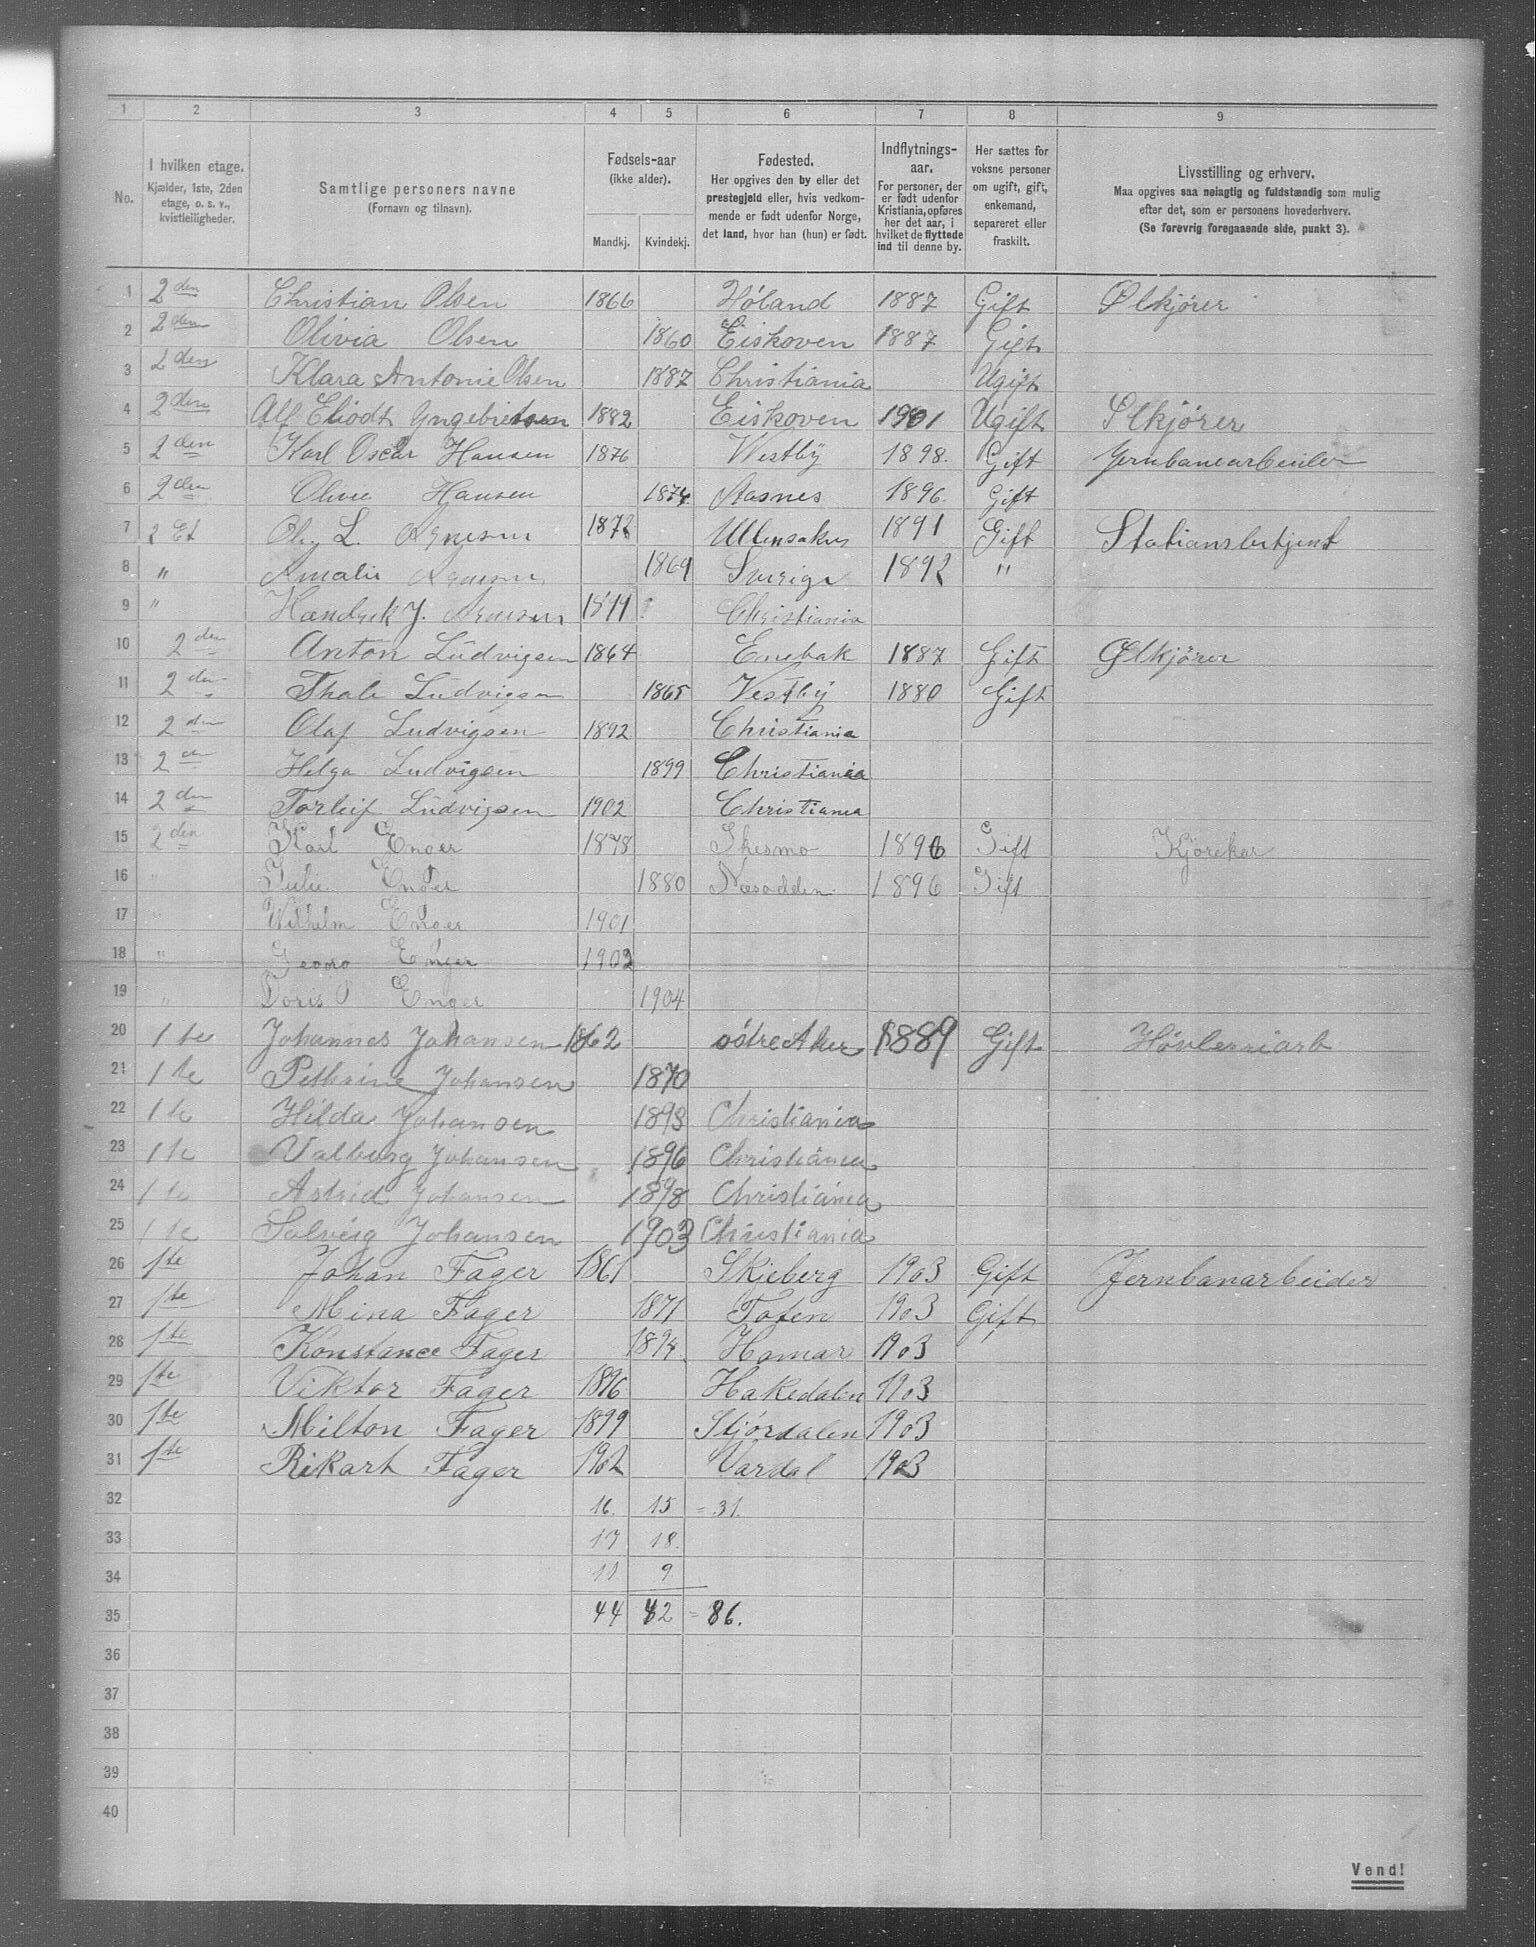 1 2 3 4 5 6 7 8 9
No.
I hvilken etage.
Kjælder, 1ste, 2den
etage, o. s. v.,
kvistleiligheder.
Samtlige personers navne
(Fornavn og tilnavn).
Fødsels-aar
(ikke alder).
Mandkj. Kvindekj.
Fødested.
Her opgives den by eller det
prestegjeld eller, hvis vedkom-
mende er født udenfor Norge,
det land, hvor han (hun) er født.
Indflytnings-
aar.
For personer, der
er født udenfor
Kristiania, opføres
her det aar, i
hvilket de flyttede
ind til denne by.
Her sættes for
voksne personer
om ugift, gift,
enkemand,
separeret eller
fraskilt.
Livsstilling og erhverv.
Maa opgives saa nøiagtig og fuldstændig som mulig
efter det, som er personens hovederhverv.
(Se forøvrig foregaaende side, punkt 3).
1 2den Christian Olsen 1866 Høland 1887 Gift Ølkjører
2 2den Olivia Olsen 1860 Eiskoven 1887 Gift
3 2den Klara Antonie Olsen 1887 Christiania Ugift
4 2den Alf Eliodt Yngebretsen 1882 Eiskoven 1901 Ugift Ølkjører
5 2den Karl Oscar Hansen 1876 Westby 1898. Gift Jernbanearbeider
6 2den Oline Hansen 1874. Aasnes 1896. Gift
7 2 Et L. Arnesen 1872 Ullensaker 1891 Gift Stationsbetjent
8 " Amalie Arnesen 1869 Sverige 1892 "
9 " J. Arnesen Christiania
10 2den Anton Ludvigsen 1864 Enebak 1887 Gift Ølkjører
11 2den Thale Ludvigsen 1865 Vestby 1880 Gift
12 2den Olaf Ludvigsen 1892 Christiania
13 2den Helga Ludvigsen 1899 Christiania
14 2den Torleif Ludvigsen 1902 Christiania
15 2den Karl Enger 1878 Skesmo 1896 Gift Kjørekar
16 " Julie Enger 1880 Næsodden 1896 Gift
17 " Wilhelm Enger 1901
18 " Georg Enger 1902
19 " Doris Enger 1904
20 1 te Johannes Johansen 1862 østre Aker 1889 Gift Høvleriarb
21 1 te Pethrine Johansen 1870
22 1 te Hilda Johansen 1893 Christiania
23 1 te Valborg Johansen 1896 Christiania
24 1 te Astrid Johansen 1898 Christiania
25 1 te Solveig Johansen 1903 Christiania
26 1te Johan Fager 1861 Skjeberg 1903 Gift Jernbanarbeider
27 1te Mina Fager 1871 Toten 1903 Gift
28 1te Konstance Fager 1894. Hamar 1903
29 1te Viktor Fager 1896 Hakedalen 1903
30 1te Milton Fager 1899 Stjørdalen 1903
31 1te Rikart Fager 1902 Vardal 1903
32 16. 15 = 31.
33 17 18.
34 11 9
35 44 42 = 86.
36
37
38
39
40
Vend!